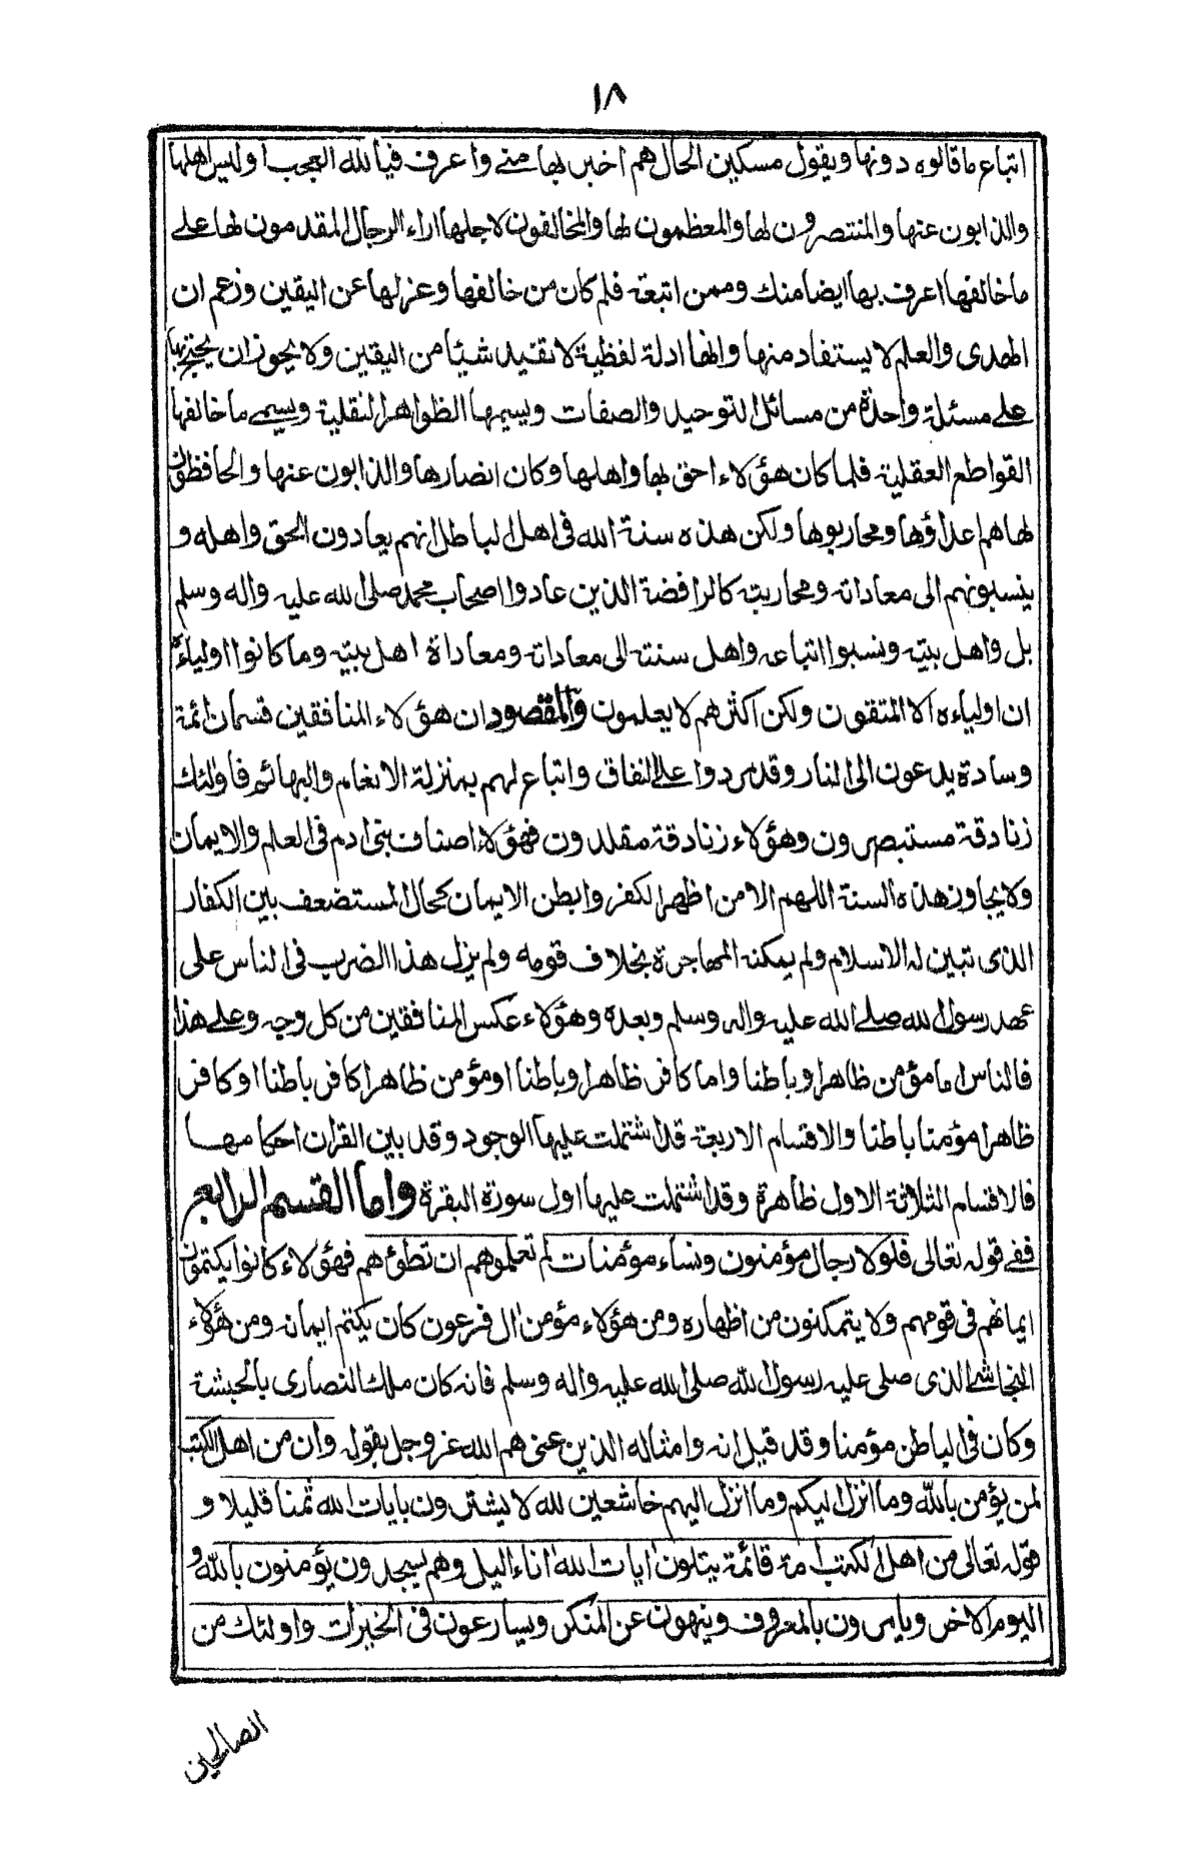 ١٨
اتباع ما قالوه دونها ويقول مسكين الحال هم اخبر بها منے واعرف فيا لله العجب او ليس اهلها
والذابون عنها والمنتصرون لها والمعظمون لها والمخالفون لاجلها اراء الرجال المقدمون لها علے
ما خالفها اعرف بها ايضا منك وممن اتبعته فلم كان من خالفها وعزلها عن اليقين وزعم ان
الهدى والعلم لا يستفاد منها وانها ادلة لفظية لا تفيد شيئا من اليقين ولا يجوز ان يحتج بها
علے مسئلة واحدة من مسائل التوحيد والصفات ويسميها الظواهر النقلية ويسمے ما خالفها
القواطع العقلية فلما كان هؤلاء احق بها واهلها وكان انصارها والذابون عنها والحافظون
لها هم اعداؤها ومحاربوها ولكن هذه سنة الله فى اهل الباطل انهم يعادون الحق واهله و
ينسبونهم الى معاداته ومحاربته كالرافضة الذين عادوا اصحاب محمد صلى الله عليه واله وسلم
بل واهل بيته ونسبوا اتباعه واهل سنته الى معاداته ومعاداة اهل بيته وما كانوا اولياءه
ان اولياءه الا المتقون ولكن اكثرهم لا يعلمون والمقصود ان هؤلاء المنافقين قسمان ائمة
وسادة يدعون الى النار وقد مردوا علے النفاق واتباع لهم بمنزلة الانعام والبهائم فاولئك
زنادقة مستبصرون وهؤلاء زنادقة مقلدون فهؤلاء اصناف بنى ادم فى العلم والايمان
ولا يجاوز هذه الستة اللهم الا من اظهر الكفر وابطن الايمان كحال المستضعف بين الكفار
الذى تبين له الاسلام ولم يمكنه المهاجرة بخلاف قومه ولم يزل هذا الضرب فى الناس على
عهد رسول الله صلے الله عليه واله وسلم وبعده وهؤلاء عكس المنافقين من كل وجه وعلے هذا
فالناس اما مؤمن ظاهرا وباطنا واما كافر ظاهرا وباطنا او مؤمن ظاهرا كافر باطنا او كافر
ظاهرا مؤمنا باطنا والاقسام الاربعة قد اشتملت عليها الوجود وقد بين القران احكامها
فالاقسام الثلاثة الاول ظاهرة وقد اشتملت عليها اول سورة البقرة واما القسم الرابع
ففے قوله تعالى فلولا رجال مؤمنون ونساء مؤمنات لم تعلموهم ان تطؤهم فهؤلاء كانوا يكتمون
ايمانهم فى قومهم ولا يتمكنون من اظهاره ومن هؤلاء مؤمن ال فرعون كان يكتم ايمانه ومن هؤلاء
النجاشے الذى صلى عليه رسول الله صلى الله عليه واله وسلم فانه كان ملك النصارى بالحبشة
وكان فى الباطن مؤمنا وقد قيل انه وامثاله الذين عنى هم الله عز وجل بقوله وان من اهل الكتب
لمن يؤمن بالله وما انزل اليكم وما انزل اليهم خاشعين لله لا يشترون بايات الله ثمنا قليلا و
قوله تعالى من اهل الكتب امة قائمة يتلون ايات الله اناء اليل وهم يسجدون يؤمنون بالله و
اليوم الاخر ويامرون بالمعروف وينهون عن المنكر ويسارعون فى الخيرات واولئك من
الصالحين